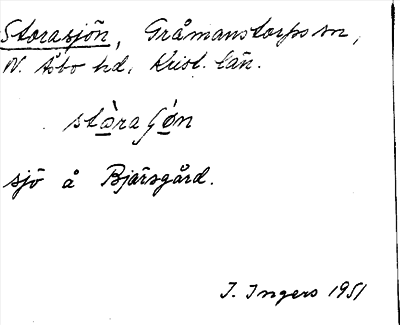 Storasjön, Gråmanstorps sn,
N. Åbo hd, Krist. län.
stòra ʃón
sjö å Bjärsgård.
I. Ingers 1951